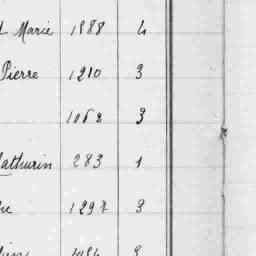 Marie 1888 4
Pierre 1210 3
1068 3
athurin 283 1
1297 3